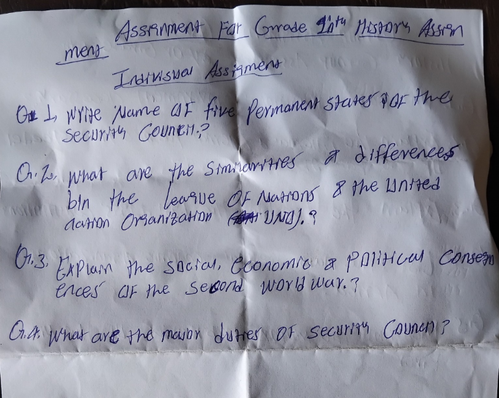 Assignment For Grade 9inth History Assign
ment
Individual Assigment
Q 1, Write Name OF five Permanent states OF the
Security Council?
Q.2, What are the similarities & differences
b/n the league OF Nations & the United
nation Organization UNO).?
Q.3. EXPlain the social, economic & political consequ
ences OF the second world war.?
Q.4. What are the major duties OF security Council?